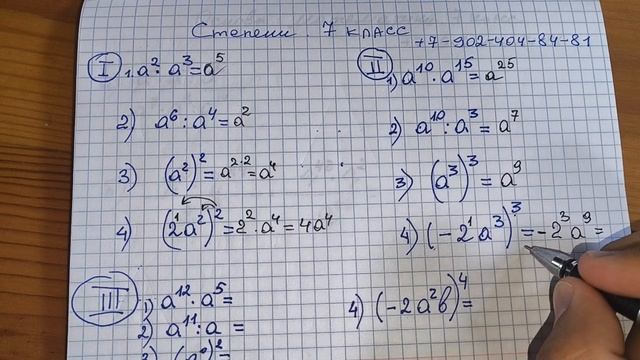 Степени. 7 класс
+7-902-404-84-81
I 1. a² · a³ = a⁵
2) a⁶ : a⁴ = a²
3) (a²)² = a²·² = a⁴
4) (2¹a²)² = 2² · a⁴ = 4a⁴
II 1) a¹⁰ · a¹⁵ = a²⁵
2) a¹⁰ : a³ = a⁷
3) (a³)³ = a⁹
4) (-2¹a³)³ = -2³a⁹ =
4) (-2a²b)⁴ =
III 1) a¹² · a⁵ =
2) a¹¹ : a =